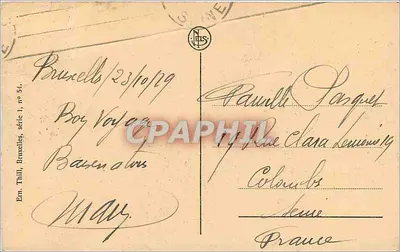 Bruxelles/23/10/29
Bon Voyage
Baisers à tous
Ern. Thill, Bruxelles, série 1, nº 54.
NELS
CPARAMA
Famille Pasquet
19 Rue Clara Lemoine 19
Colombes
Seine
France